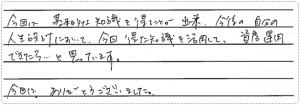 今回は、基本的な知識を得ることが出来、今後の自分の
人生設計において、今回得た知識を活用して、資産運用
できたらな…と思っています。
今回は、ありがとうございました。